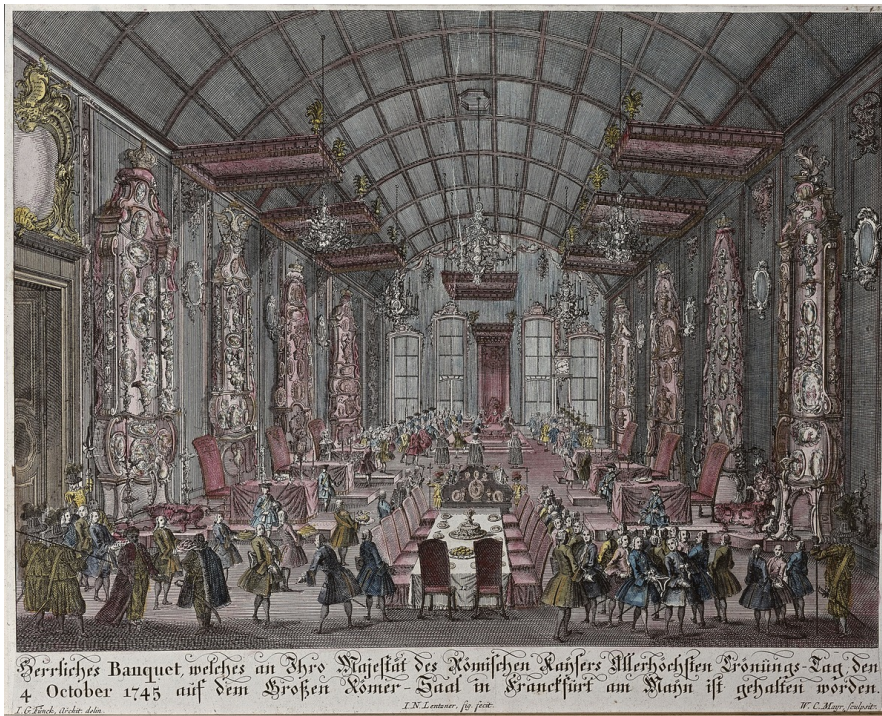 Herrliches Banquet, welches an Ihro Majestät des Römischen Kaysers Allerhöchsten Crönungs-Tag, den
4 October 1745 auf dem Großen Römer-Saal in Franckfurt am Mayn ist gehalten worden.
I. G. Funck, Archit: delin. I. N. Lentzner, fig. fecit. W. C. Mayr, sculpsit.